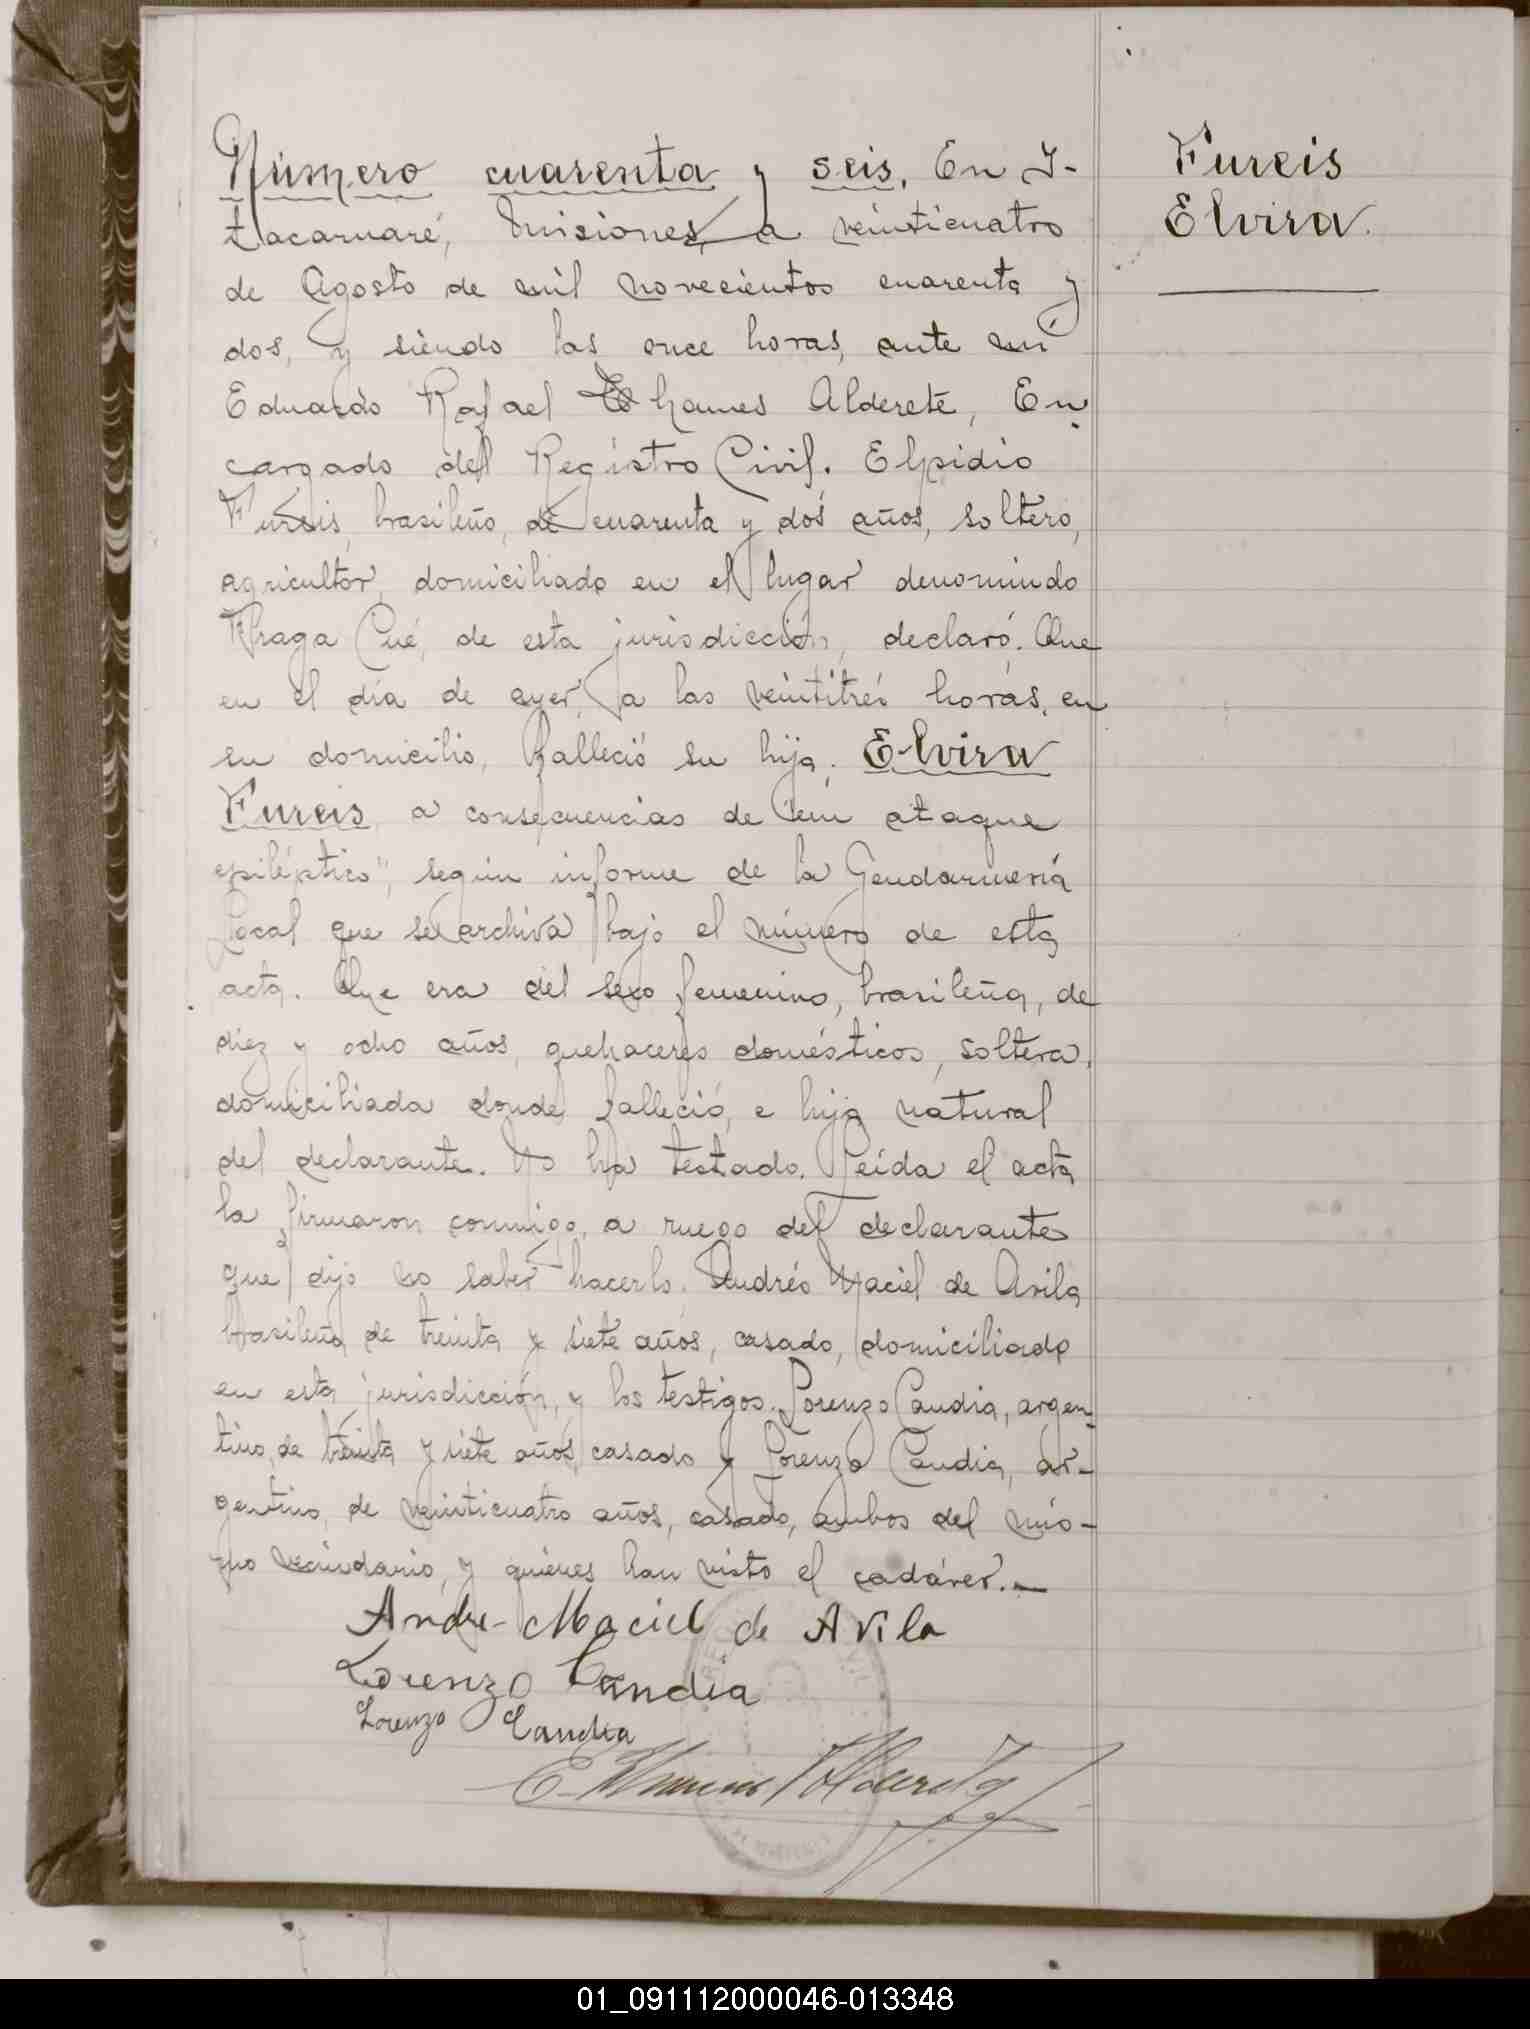 Número cuarenta y seis. En I-
tacaruaré, Misiones, a veinticuatro
de Agosto de mil novecientos cuarenta y
dos, y siendo las once horas, ante mí
Eduardo Rafael Thames Alderete, En-
cargado del Registro Civil. Elpidio
Fureis, brasileño, de cuarenta y dos años, soltero,
agricultor, domiciliado en el lugar denomindo
Fraga Cué, de esta jurisdicción, declaró: Que
en el día de ayer, a las veintitrés horas, en
su domicilio, falleció su hija: Elvira
Fureis, a consecuencias de "un ataque
epiléptico", según informe de la Gendarmería
Local que se archiva bajo el número de esta
acta. Que era del sexo femenino, brasileña, de
diez y ocho años, quehaceres domésticos, soltera,
domiciliada donde falleció, e hija natural
del declarante. No ha testado. Leída el acta
la firmaron conmigo, a ruego del declarante
que dijo no saber hacerlo. Andrés Maciel de Avila
brasileño, de treinta y siete años, casado, domiciliado
en esta jurisdicción, y los testigos. Lorenzo Candia, argen-
tino, de treinta y siete años, casado y Lorenzo Candia, ar-
gentino, de veinticuatro años, casado, ambos del mis-
mo vecindario, y quienes han visto el cadáver.-
Andre Maciel de Avila
Lorenzo Candia
Lorenzo Candia
E. Thames Alderete
Fureis
Elvira
01_091112000046-013348